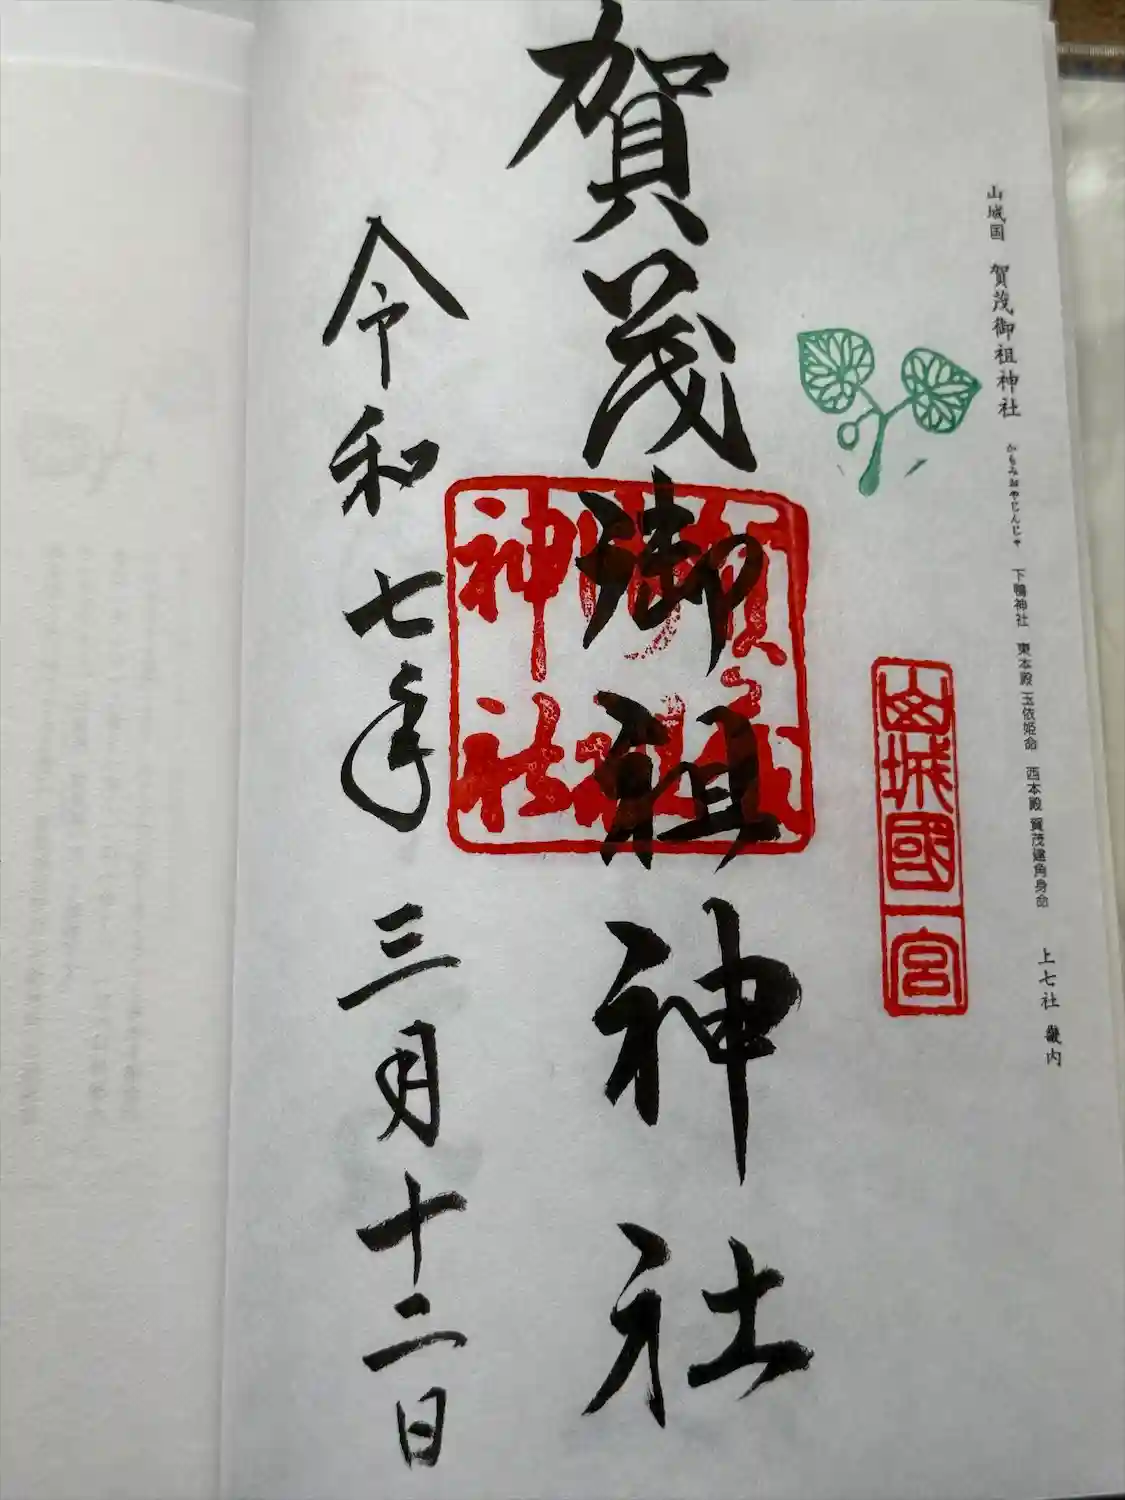 山城国 賀茂御祖神社 かもみおやじんじゃ 下鴨神社 東本殿 玉依姫命 西本殿 賀茂建角身命 上七社 畿内
山城國一宮
賀茂御祖神社
賀茂御祖神社
令和七年三月十二日